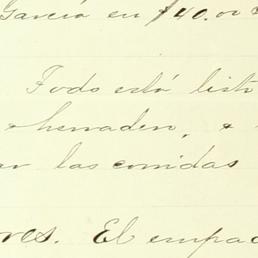 García en $40.00
Todo está list
herraden, &
las comidas
res. El empac